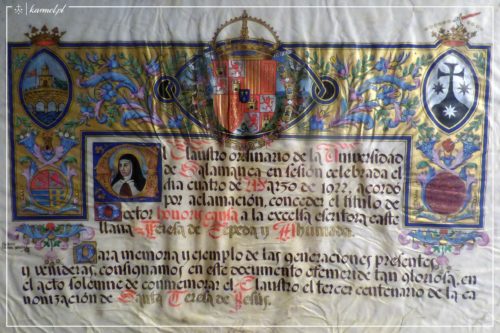 karmel.pl
El Claustro ordinario de la Universidad
de Salamanca en sesión celebrada el
día cuatro de Marzo de 1922, acordó
por aclamación, conceder el título de
Doctor honoris causa a la excelsa escritora caste
llana, Teresa de Cepeda y Ahumada.
Para memoria y ejemplo de las generaciones presentes
y venideras, consignamos en este documento efeméride tan gloriosa, en
el acto solemne de conmemorar el Claustro el tercer centenario de la ca
nonización de Santa Teresa de Jesús.